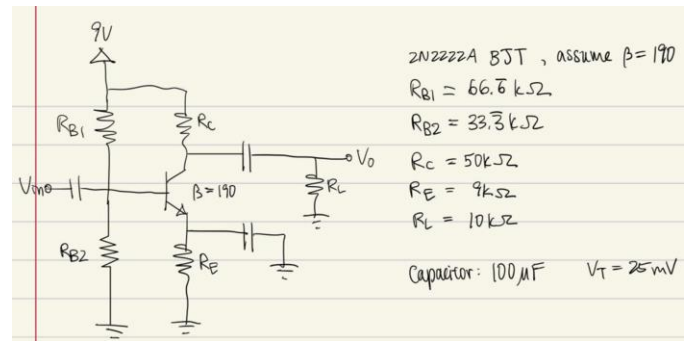 9V
RB1
RC
Vo
Vin
β=190
RL
RB2
RE
2N2222A BJT , assume β=190
RB1 = 66.6̅ kΩ
RB2 = 33.3̅ kΩ
RC = 50kΩ
RE = 9kΩ
RL = 10kΩ
Capacitor: 100μF VT = 25mV